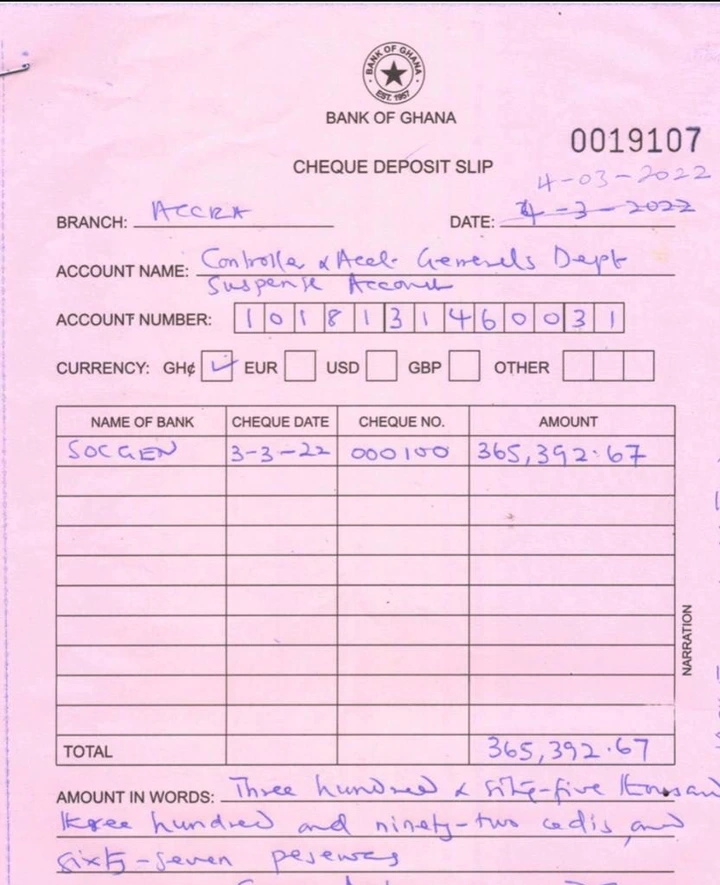 BANK OF GHANA
EST. 1957
BANK OF GHANA
0019107
CHEQUE DEPOSIT SLIP
4-03-2022
BRANCH: ACCRA DATE: 4-3-2022
ACCOUNT NAME: Controller & Acct. Generals Dept
Suspense Account
ACCOUNT NUMBER: 1018131460031
CURRENCY: GH¢ ✓ EUR USD GBP OTHER
NAME OF BANK CHEQUE DATE CHEQUE NO. AMOUNT
SOCGEN 3-3-22 000100 365,392.67
NARRATION
TOTAL 365,392.67
AMOUNT IN WORDS: Three hundred & sixty-five thousand
three hundred and ninety-two cedis and
sixty-seven pesewas